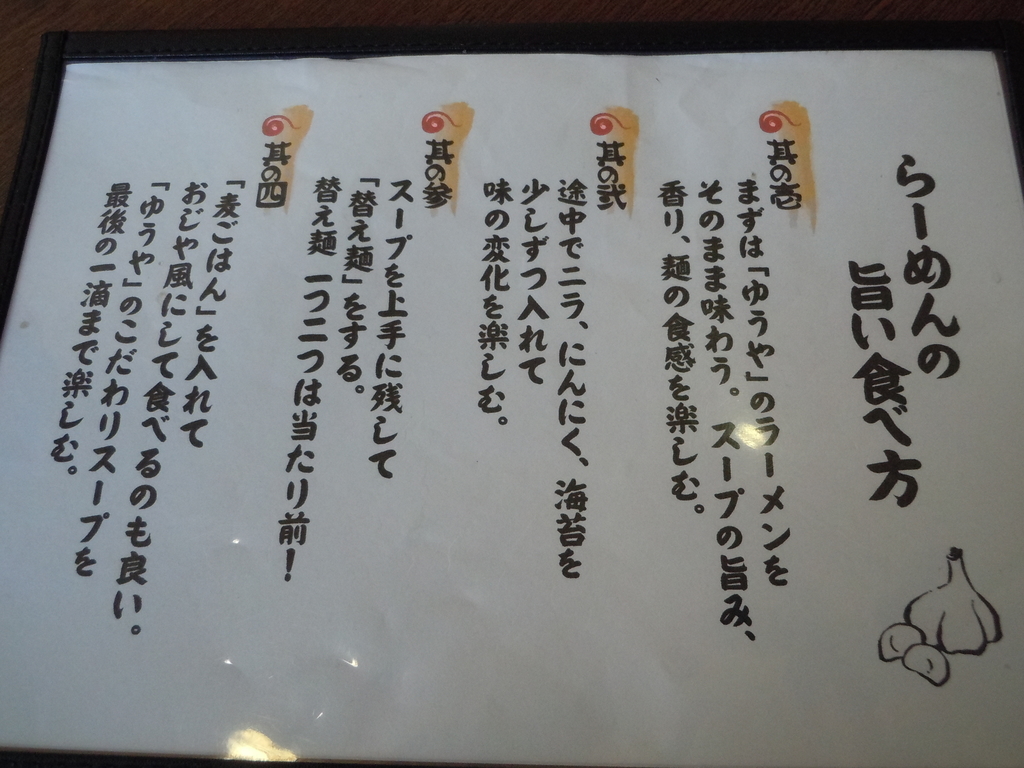 らーめんの
旨い食べ方
其の壱
まずは「ゆうや」のラーメンを
そのまま味わう。スープの旨み、
香り、麺の食感を楽しむ。
其の弐
途中でニラ、にんにく、海苔を
少しずつ入れて
味の変化を楽しむ。
其の参
スープを上手に残して
「替え麺」をする。
替え麺 一つ二つは当たり前！
其の四
「麦ごはん」を入れて
おじや風にして食べるのも良い。
「ゆうや」のこだわりスープを
最後の一滴まで楽しむ。